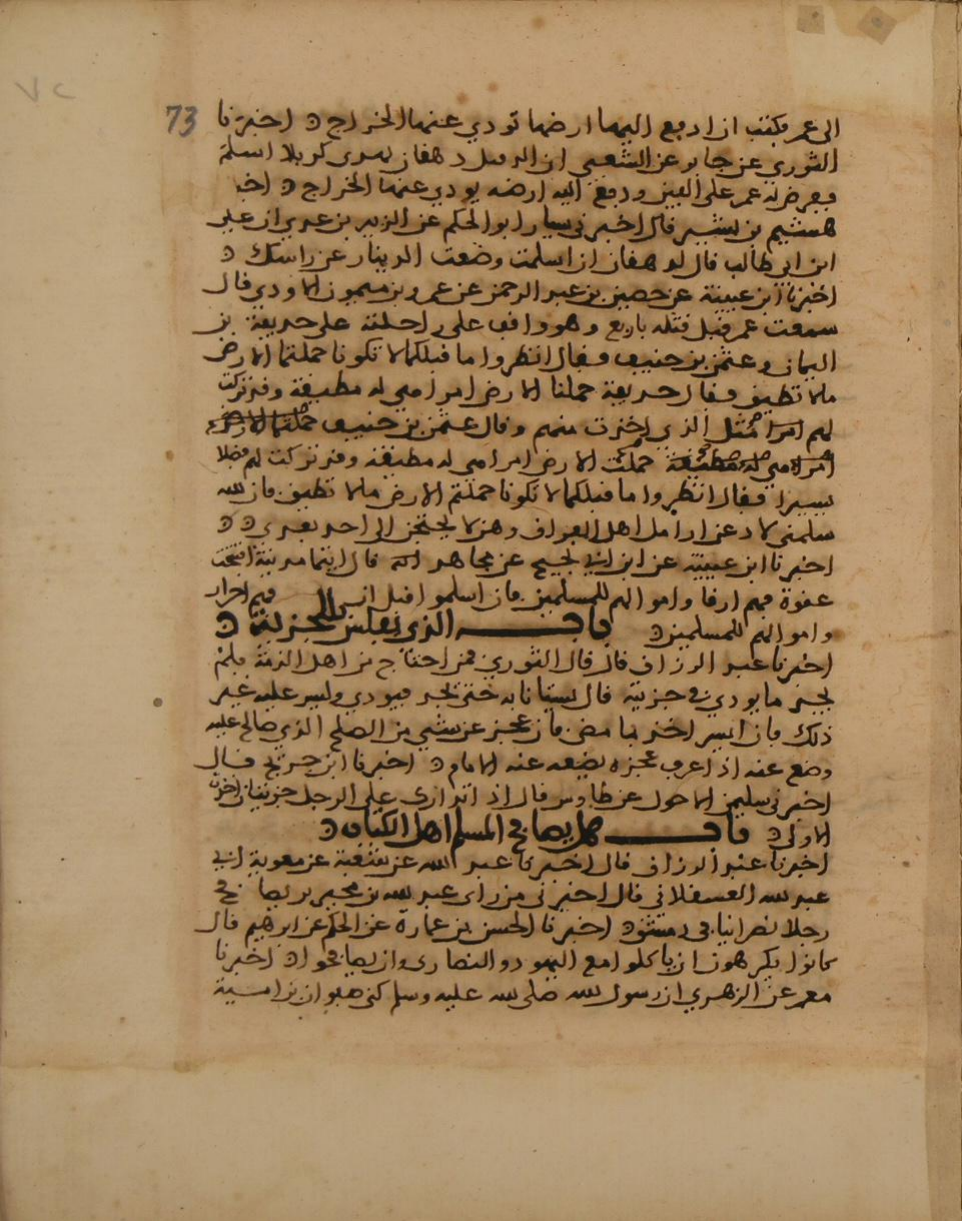 73
الى عمر فكتب ان ادفع اليها ارضها تودي عنها الخراج ه اخبرنا
الثوري عن جابر عن الشعبي ان الرفيل دهقان نهرى كربلا اسلم
ففرض له عمر على الفين ودفع اليه ارضه يودي عنها الخراج ه اخبـ
هشيم بن بشير قال اخبرني سيار ابو الحكم عن الزبير بن عدي ان علي
ابن ابي طالب قال لدهقان ان اسلمت وضعت الدينار عن راسك ه
اخبرنا ابن عيينة عن حصين بن عبد الرحمن عن عمرو بن ميمون الاودي قال
سمعت عمر قبل قتله باربع وهو واقف على راحلته على حذيفة بن
اليمان وعثمن بن حنيف فقال انظروا ما قبلكما لا تكونا حملتما الارض
ما لا تطيق فقال حذيفة حملنا الارض امرا هي له مطيقة وقد تركت
لهم امرا مثل الذي اخذت منهم وقال عثمن بن حنيف حملتها الارض
امرا هي له مطيقة حملت الارض امرا هي له مطيقة وقد تركت لهم فضلا
يسيرا فقال انظروا ما قبلكما لا تكونا حملتم الارض ما لا تطيق فان الله
سلمني لادعن ارامل اهل العراق وهن لا يحتجن الى احد بعدي ه ه
اخبرنا ابن عيينة عن ابن ابي نجيح عن مجاهد قال ايما مدينة افتتحت
عنوة فهم ارقا واموالهم للمسلمين فان اسلموا قبل ان فهم احرار
واموالهم للمسلمين ه باب الذي يفلس الجزية ه
اخبرنا عبد الرزاق قال قال الثوري فمن احتاج من اهل الذمة فلم
يجد ما يودي في جزيته قال يستانا به حتى يجد فيودي وليس عليه غير
ذلك فان ايسر اخذ بما مضى فان عجز عن شي من الصلح الذي صالح عليه
وضع عنه اذا عرف عجزه يضعه عنه الامام ه اخبرنا ابن جريج قال
اخبرني سليمن الاحول عن طاوس قال اذا تداركت على الرجل جزيتان اخذت
الاولى ه باب هل يصافح المسلم اهل الكتاب ه
اخبرنا عبد الرزاق قال اخبرنا عبد الله عن معوية ابي
عبد الله العسقلاني قال اخبرني من راى عبد الله بن محيريز يصافح
رجلا نصرانيا في دمشق ه اخبرنا الحسن بن عمارة عن الحكم عن ابرهيم قال
كانوا يكرهون ان ياكلوا مع اليهود والنصارى وان يصافحوا ه اخبرنا
معمر عن الزهري ان رسول الله صلى الله عليه وسلم كنى صفوان بن امية